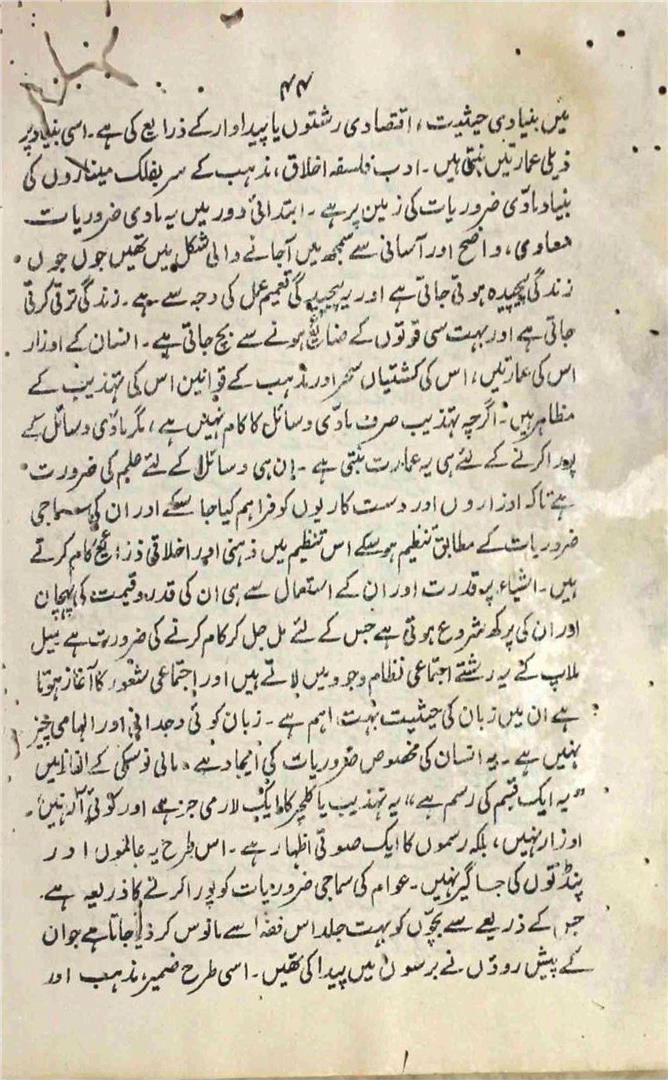 ۴۴
میں بنیادی حیثیت، اقتصادی رشتوں یا پیداوار کے ذرایع کی ہے۔ اسی بنیاد پر
ذیلی عمارتیں بنتی ہیں۔ ادب فلسفہ اخلاق، مذہب کے سربفلک میناروں کی
بنیاد مادّی ضروریات کی زمین پر ہے۔ ابتدائی دور میں یہ مادی ضروریات
معاومی، واضح اور آسانی سے سمجھ میں آجانے والی شکل میں تھیں جوں جوں
زندگی پیچیدہ ہوتی جاتی ہے اور یہ پیچیدگی تعمیم عمل کی وجہ سے ہے۔ زندگی ترقی کرتی
جاتی ہے اور بہت سی قوتوں کے ضائع ہونے سے بچ جاتی ہے۔ انسان کے اوزار
اس کی عمارتیں، اس کی کشتیاں سحر اور مذہب کے قوانین اس کی تہذیب کے
مظاہر ہیں۔ اگرچہ تہذیب صرف مادّی وسائل کا کام نہیں ہے، مگر مادّی وسائل کے
پورا کرنے کے لئے ہی یہ عمارت بنتی ہے۔ ان ہی وسائل کے لئے علم کی ضرورت
ہے تاکہ اوزاروں اور دست کاریوں کو فراہم کیا جا سکے اور ان کی سماجی
ضروریات کے مطابق تنظیم ہو سکے اس تنظیم میں ذہنی اور اخلاقی ذرائع کام کرتے
ہیں۔ اشیاء پر قدرت اور ان کے استعمال سے ہی ان کی قدر و قیمت کی پہچان
اور ان کی پرکھ شروع ہوتی ہے جس کے لئے مل جل کر کام کرنے کی ضرورت ہے میل
ملاپ کے یہ رشتے اجتماعی نظام وجود میں لاتے ہیں اور اجتماعی شعور کا آغاز ہوتا
ہے ان میں زبان کی حیثیت بہت اہم ہے۔ زبان کوئی وجدانی اور الہامی چیز
نہیں ہے۔ یہ انسان کی مخصوص ضروریات کی ایجاد ہے، مالی نوسکی کے الفاظ میں
”یہ ایک قسم کی رسم ہے“ یہ تہذیب یا کلچر کا ایک لازمی جز ہے اور کوئی آلہ نہیں۔
اوزار نہیں، بلکہ رسموں کا ایک صوتی اظہار ہے۔ اس طرح یہ عالموں اور
پنڈتوں کی جاگیر نہیں۔ عوام کی سماجی ضروریات کو پورا کرنے کا ذریعہ ہے۔
جس کے ذریعے سے بچّوں کو بہت جلد اس فضا سے مانوس کر دیا جاتا ہے جو ان
کے پیش روؤں نے برسوں میں پیدا کی تھیں۔ اسی طرح ضمیر، مذہب اور